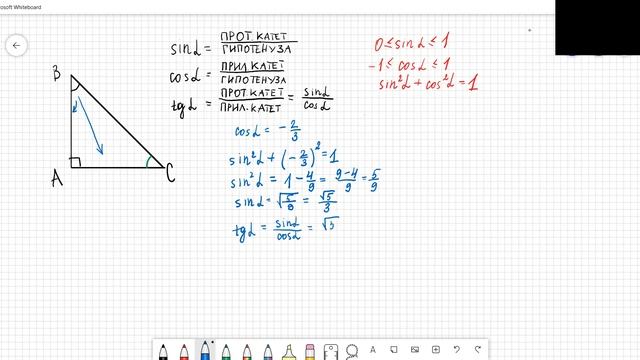 osoft Whiteboard
sin α = ПРОТ. КАТЕТ / ГИПОТЕНУЗА
cos α = ПРИЛ. КАТЕТ / ГИПОТЕНУЗА
tg α = ПРОТ. КАТЕТ / ПРИЛ. КАТЕТ = sin α / cos α
0 ≤ sin α ≤ 1
-1 ≤ cos α ≤ 1
sin²α + cos²α = 1
B
α
A
C
cos α = - 2/3
sin²α + (- 2/3)² = 1
sin²α = 1 - 4/9 = 9-4/9 = 5/9
sin α = √5/9 = √5/3
tg α = sin α / cos α =
A